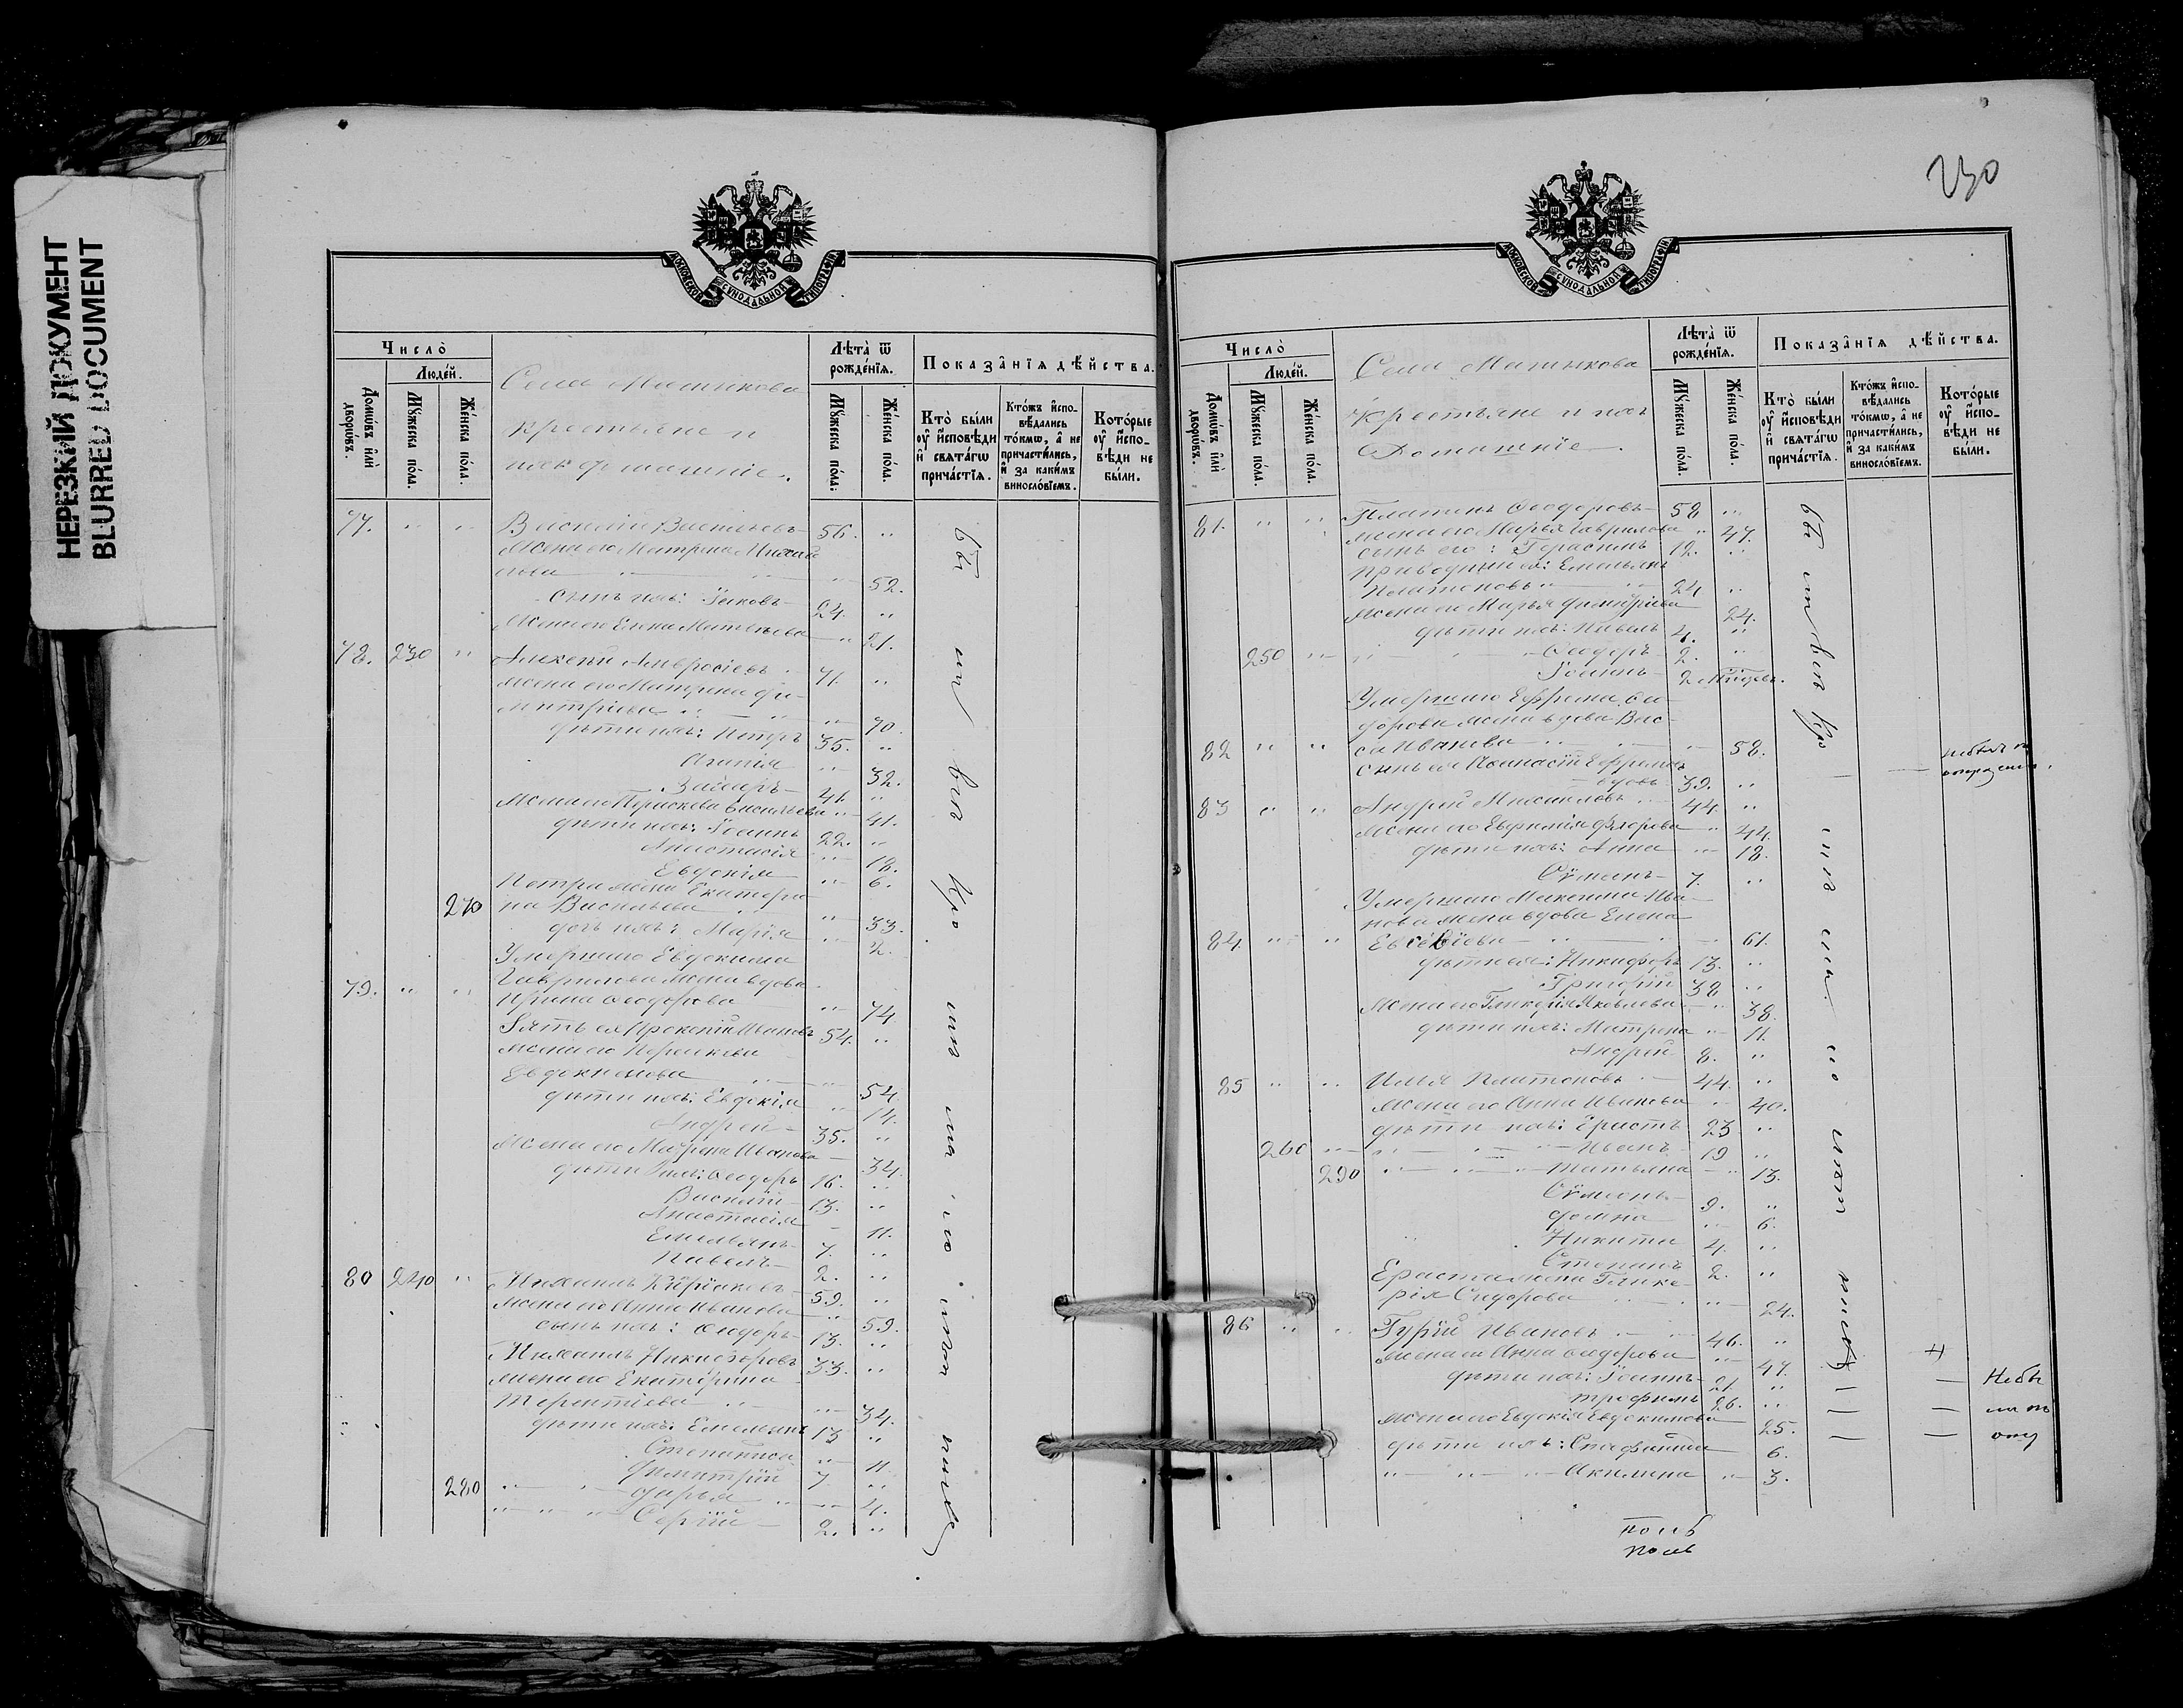 НЕРЕЗКИЙ ДОКУМЕНТ
BLURRED DOCUMENT
МОСКОВСКОЙ СѴНОДАЛЬНОЙ ТИПОГРАФІИ
Число̀
Людей.
Домѡвъ и҆лѝ дворѡвъ.
Мꙋжеска пола.
Женска пола.
Села Матчкова
крестьяне и
ихъ домашніе.
Лѣта̀ ѿ рожденїѧ.
Мꙋжеска пола.
Женска пола.
Показанїѧ дѣйства.
Кто̀ были ᲂу҆ и҆сповѣди и҆ свѧтагѡ причастїѧ.
Ктожъ и҆споведались токмѡ, а҆ не причастились, и҆ за какимъ винословїемъ.
Которые ᲂу҆ и҆сповѣди не были.
77. " " Василій Васильевъ 56. "
жена его Матрона Михаи
лова " 52.
сынъ ихъ: Іаковъ 24. "
жена его Елена Матвѣева " 21.
78. 230 " Алексѣй Амвросіевъ 71. "
жена его Матрона Ди-
митріева " 70.
дѣти ихъ: Петръ 35. "
Агапія " 32.
Захаръ 41. "
жена его Параскева Васильева " 41.
дѣти ихъ: Іоаннъ 22. "
Анастасія " 18.
Евдокія " 6.
Петра жена Екатери
270 на Васильева " 33.
дочь ихъ: Марія " 2.
Умершаго Евдокима
Гаврилова жена вдова
79. " " Ирина Ѳеодорова " 74.
Зять ея Прокопій Ивановъ 54. "
жена его Параскева
Евдокимова " 54.
дѣти ихъ: Евдокія " 14.
Андрей 35. "
жена его Матрона Иванова " 34.
дѣти ихъ: Ѳеодоръ 16. "
Василій 13. "
Анастасія " 11.
Емельянъ 7. "
Павелъ 2. "
80 240 " Михаилъ Киріаковъ 59. "
жена его Анна Иванова " 59.
сынъ ихъ: Ѳеодоръ 13. "
Михаилъ Никифоровъ 33. "
жена его Екатерина
Терентіева " 34.
дѣти ихъ: Емельянъ 13 "
Степанида " 11
Димитрій 7. "
280 Дарья " 4.
Сергій 2. "
230
МОСКОВСКОЙ СѴНОДАЛЬНОЙ ТИПОГРАФІИ
Число̀
Людей.
Домѡвъ и҆лѝ дворѡвъ.
Мꙋжеска пола.
Женска пола.
Села Матчкова
крестьяне и ихъ
Домашніе.
Лѣта̀ ѿ рожденїѧ.
Мꙋжеска пола.
Женска пола.
Показанїѧ дѣйства.
Кто̀ были ᲂу҆ и҆сповѣди и҆ свѧтагѡ причастїѧ.
Ктожъ и҆споведались токмѡ, а҆ не причастились, и҆ за какимъ винословїемъ.
Которые ᲂу҆ и҆сповѣди не были.
81. " " Платонъ Ѳеодоровъ 58 "
жена его Марья Гаврилова " 47.
сынъ его: Герасимъ 12. "
Емельянъ
Платоновъ 24 "
жена его Марья Димитріева " 24.
дѣти ихъ: Павелъ 4. "
250 " Ѳеодоръ 2. "
Іоаннъ 2
Умершаго Ефрема Ѳео-
дорова жена вдова Вас-
82 " " са Иванова " 58.
сынъ ея Аѳанасій Ефремовъ
вдовъ 39. "
83 " " Андрей Михаиловъ 44. "
жена его Евфимія Ѳедорова " 44.
дѣти ихъ: Анна " 18.
Сѵмеонъ 7. "
Умершаго Максима Ива
нова жена вдова Елена
84. " " Евсевіева " 61.
дѣти ея: Никифоръ 13. "
Григорій 38 "
жена его Гликерія Яковлева " 38.
дѣти ихъ: Матрона " 11.
Андрей 8. "
85 " " Илья Платоновъ 44. "
жена его Анна Иванова " 40.
дѣти ихъ: Ерастъ 23 "
260 " Иванъ 19 "
290 Татьяна " 13.
Сѵмеонъ 9. "
Домна " 6.
Никита 4. "
Степанъ 2. "
Ераста жена Глике-
рія Сидорова " 24.
86 " " Гурій Ивановъ 46. "
жена его Анна Ѳеодорова " 47.
дѣти ихъ: Іоаннъ 21. "
Трофимъ 26. "
жена его Евдокія Евдокимова 25.
дѣти ихъ: Стефанида 6.
Акилина " 3.